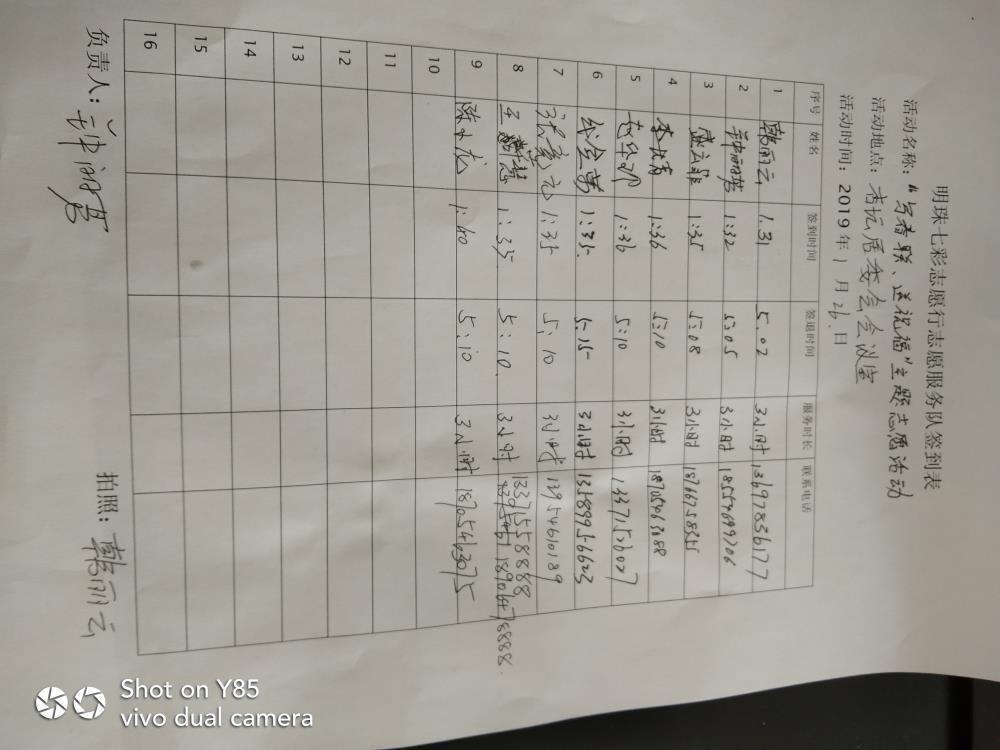 明珠七彩志愿行志愿服务队签到表
活动名称："写春联、送祝福"主题志愿活动
活动地点：杏坛居委会会议室
活动时间：2019年1月26日
序号 姓名 签到时间 签退时间 服务时长 联系电话
1 韩丽云 1.31 5.02 3小时 13697836177
2 钟丽萼 1:32 5:05 3小时 18554699706
3 1:35 5:08 3小时 18766758355
4 1:36 5:10 3小时 18705463088
5 1:36 5:10 3小时 13371526027
6 1:35 5:15 3小时 13589956623
7 1:35 5:10 3小时 13954610189
8 王 1:35 5:10 3小时 13371558888 18906478888
9 陈小龙 1:40 5:10 3小时 18705463075
10
11
12
13
14
15
16
负责人：
拍照：韩丽云
Shot on Y85
vivo dual camera